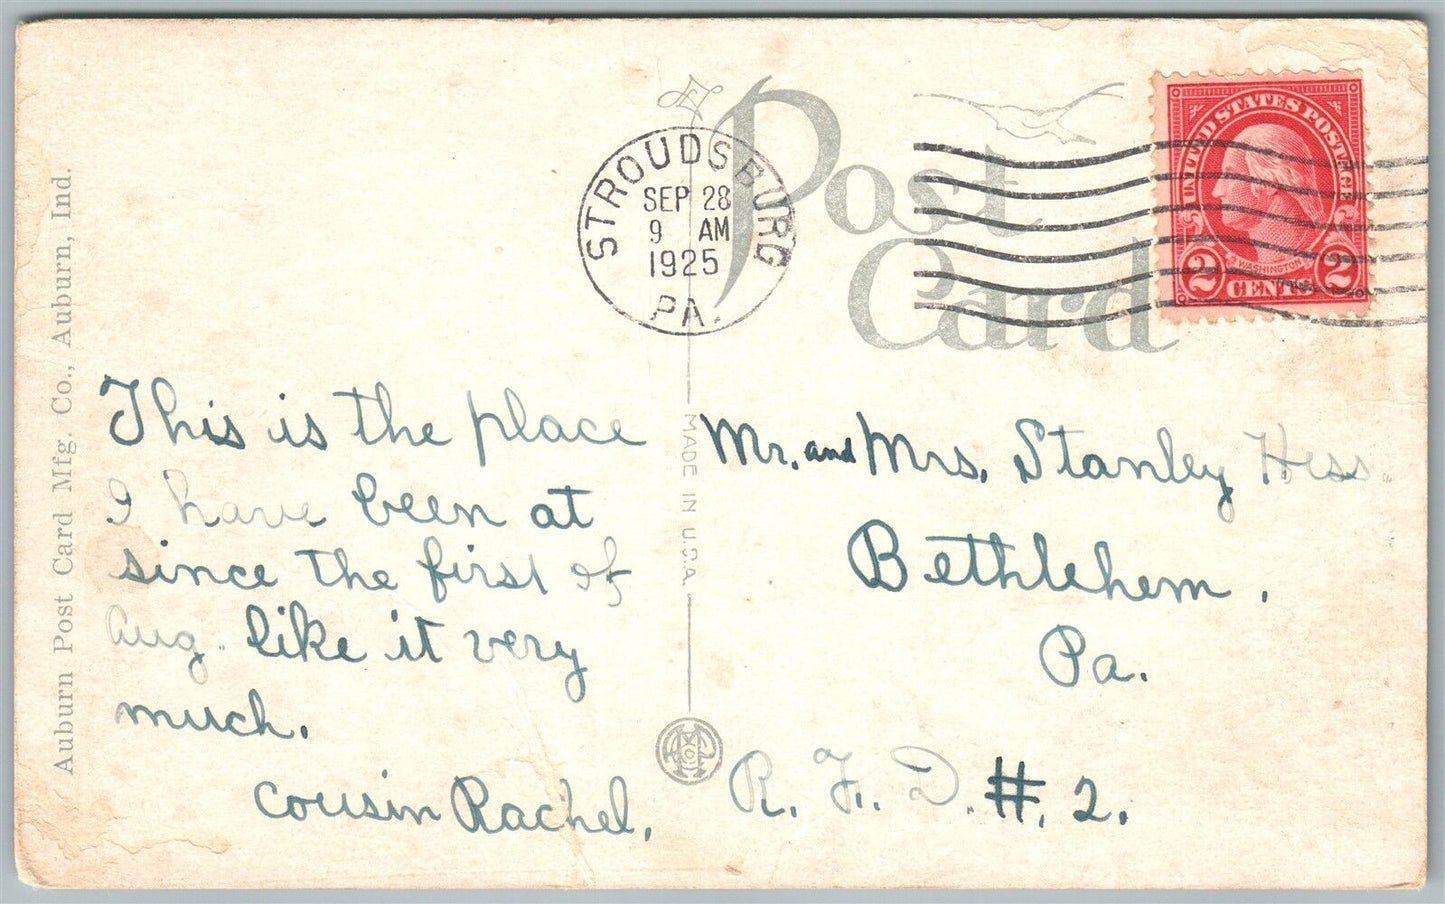 Auburn Post Card Mfg. Co., Auburn, Ind.
Post
Card
STROUDSBURG
SEP 28
9 AM
1925
PA.
UNITED STATES POSTAGE
WASHINGTON
2 CENTS 2
This is the place
I have been at
since the first of
Aug. like it very
much.
Cousin Rachel.
MADE IN U.S.A.
Mr. and Mrs. Stanley Hess
Bethlehem.
Pa.
R. F. D. #. 2.